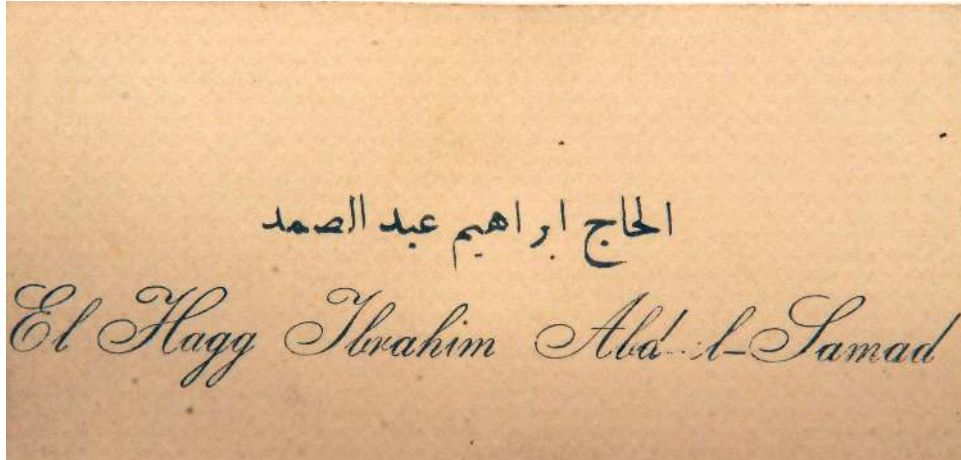 الحاج ابراهيم عبد الصمد
El Hagg Ibrahim Abd l-Samad